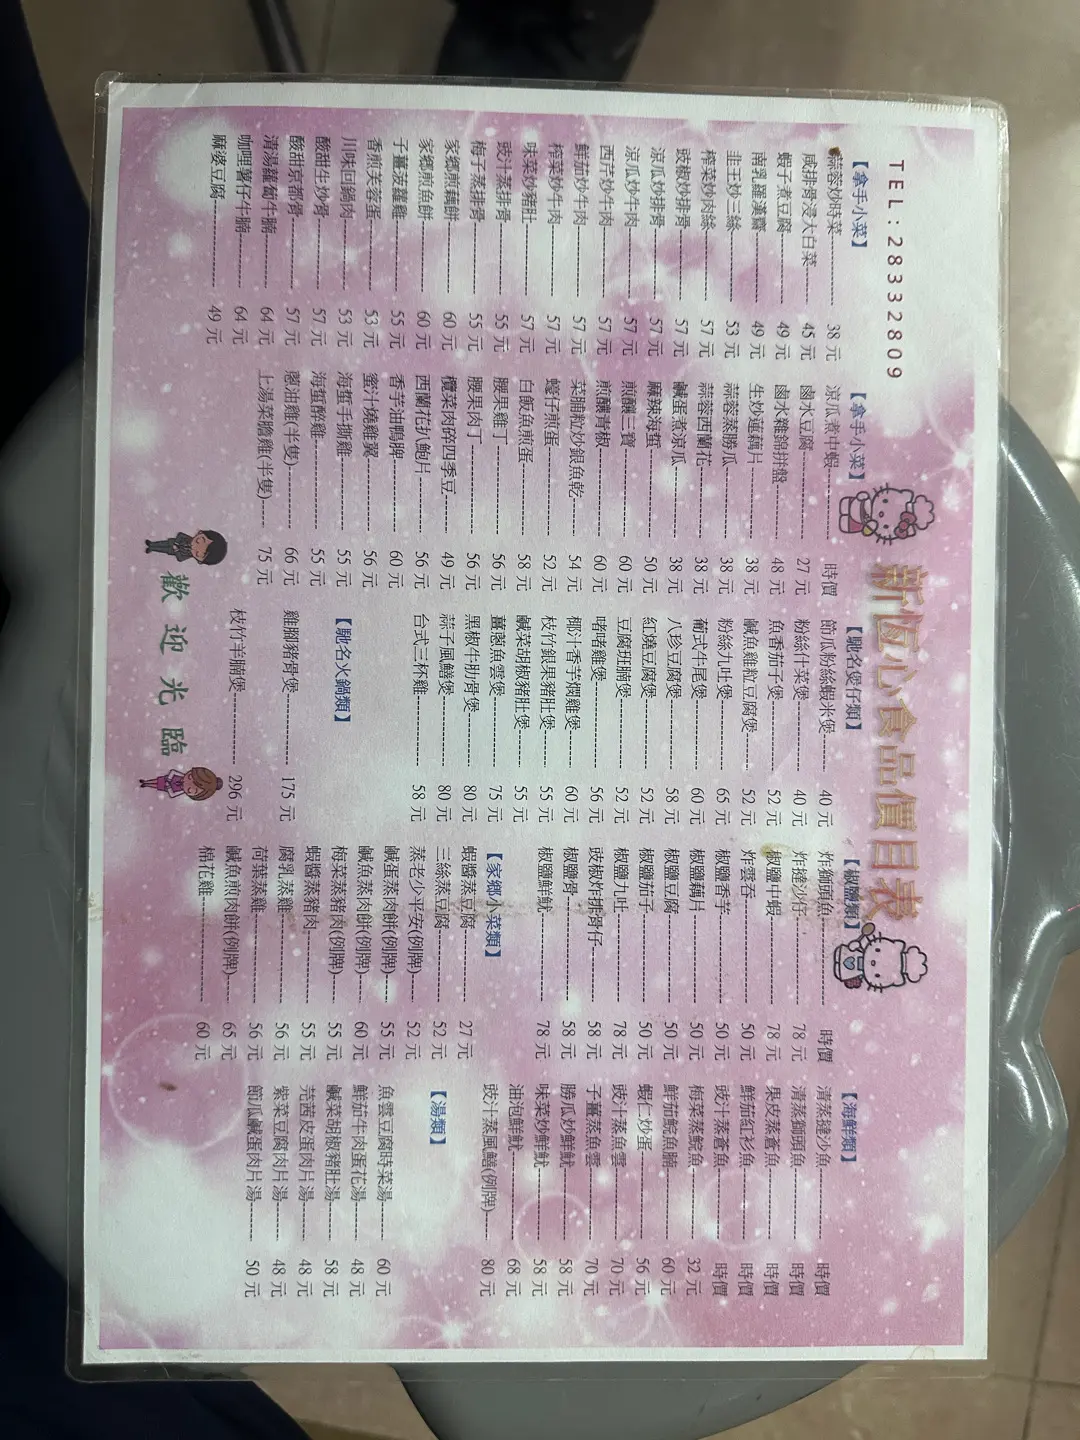 TEL:28332809
新恆心食品價目表
【拿手小菜】
蒜蓉炒時菜 38 元
咸排骨浸大白菜 45 元
蝦子煮豆腐 49 元
南乳羅漢齋 49 元
韭王炒三絲 53 元
榨菜炒肉絲 57 元
豉椒炒排骨 57 元
涼瓜炒排骨 57 元
涼瓜炒牛肉 57 元
西芹炒牛肉 57 元
鮮茄炒牛肉 57 元
榨菜炒牛肉 57 元
味菜炒豬肚 57 元
豉汁蒸排骨 55 元
梅子蒸排骨 55 元
家鄉煎藕餅 60 元
家鄉煎魚餅 60 元
子薑菠蘿雞 55 元
香煎芙蓉蛋 53 元
川味回鍋肉 53 元
酸甜生炒骨 57 元
酸甜京都骨 57 元
清湯蘿蔔牛腩 64 元
咖哩薯仔牛腩 64 元
麻婆豆腐 49 元
【拿手小菜】
涼瓜煮中蝦 時價
鹵水豆腐 27 元
鹵水雜錦拼盤 48 元
生炒蓮藕片 38 元
蒜蓉蒸勝瓜 38 元
蒜蓉西蘭花 38 元
鹹蛋煮涼瓜 38 元
麻辣海蜇 50 元
煎釀三寶 60 元
煎釀青椒 60 元
菜脯粒炒銀魚乾 54 元
蠔仔煎蛋 52 元
白飯魚煎蛋 58 元
腰果雞丁 56 元
腰果肉丁 56 元
欖菜肉碎四季豆 49 元
西蘭花扒鮑片 56 元
香芋油鴨脾 60 元
蜜汁燒雞翼 56 元
海蜇手撕雞 55 元
海蜇醉雞 55 元
蔥油雞(半隻) 66 元
上湯菜膽雞(半隻) 75 元
【馳名煲仔類】
節瓜粉絲蝦米煲 40 元
粉絲什菜煲 40 元
魚香茄子煲 52 元
鹹魚雞粒豆腐煲 52 元
粉絲九吐煲 65 元
葡式牛尾煲 60 元
八珍豆腐煲 58 元
紅燒豆腐煲 52 元
豆腐班腩煲 52 元
啫啫雞煲 56 元
椰汁香芋燜雞煲 60 元
枝竹銀果豬肚煲 55 元
鹹菜胡椒豬肚煲 55 元
薑蔥魚雲煲 75 元
黑椒牛肋骨煲 80 元
蒜子風鱔煲 80 元
台式三杯雞 58 元
【馳名火鍋類】
雞腳豬骨煲 175 元
枝竹羊腩煲 296 元
【椒鹽類】
炸獅頭魚 時價
炸撻沙仔 78 元
椒鹽中蝦 78 元
炸雲吞 50 元
椒鹽香芋 50 元
椒鹽藕片 50 元
椒鹽豆腐 50 元
椒鹽茄子 50 元
椒鹽九吐 78 元
豉椒炸排骨仔 58 元
椒鹽骨 58 元
椒鹽鮮魷 78 元
【家鄉小菜類】
蝦醬蒸豆腐 27 元
三絲蒸豆腐 52 元
蒸老少平安(例牌) 52 元
鹹蛋蒸肉餅(例牌) 55 元
鹹魚蒸肉餅(例牌) 60 元
梅菜蒸豬肉(例牌) 55 元
蝦醬蒸豬肉 55 元
腐乳蒸雞 56 元
荷葉蒸雞 56 元
鹹魚煎肉餅(例牌) 65 元
棉花雞 60 元
【海鮮類】
清蒸撻沙魚 時價
清蒸獅頭魚 時價
果皮蒸倉魚 時價
鮮茄紅衫魚 時價
豉汁蒸倉魚 時價
梅菜蒸鯇魚 32 元
鮮茄鯇魚腩 60 元
蝦仁炒蛋 56 元
豉汁蒸魚雲 70 元
子薑蒸魚雲 70 元
勝瓜炒鮮魷 58 元
味菜炒鮮魷 58 元
油泡鮮魷 68 元
豉汁蒸風鱔(例牌) 80 元
【湯類】
魚雲豆腐時菜湯 60 元
鮮茄牛肉蛋花湯 48 元
鹹菜胡椒豬肚湯 58 元
芫茜皮蛋肉片湯 48 元
紫菜豆腐肉片湯 48 元
節瓜鹹蛋肉片湯 50 元
歡迎光臨